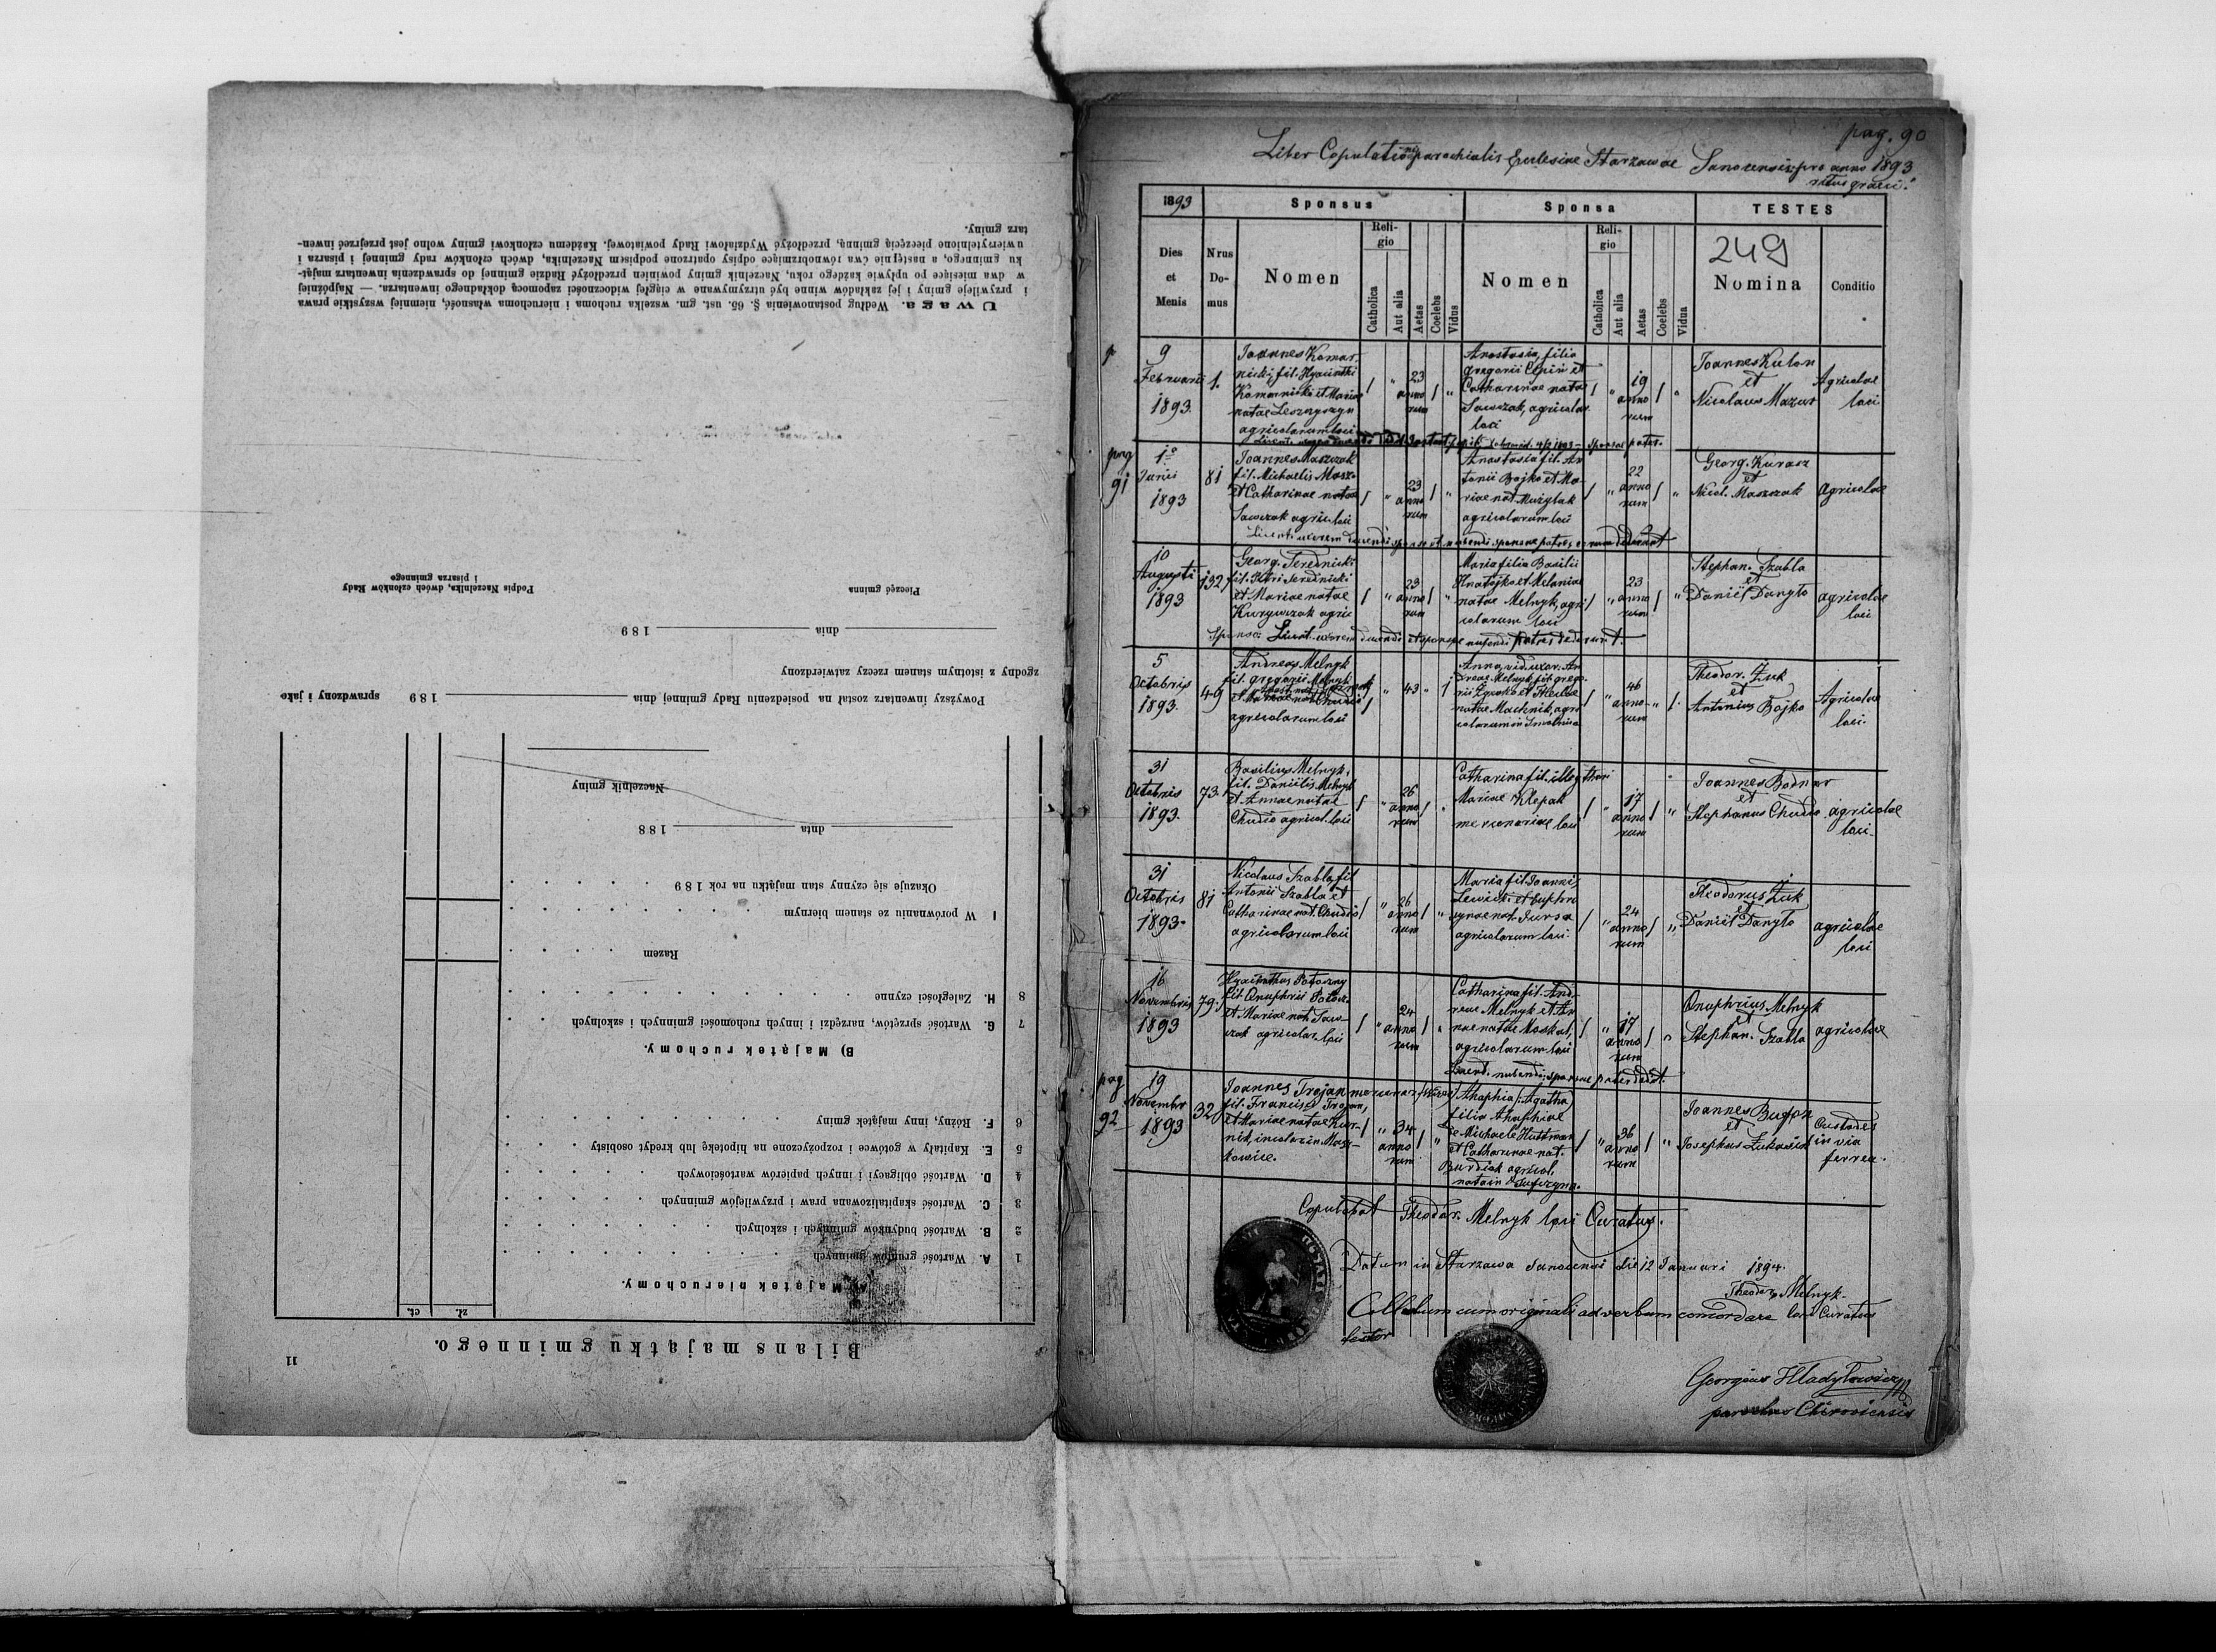 11
Bilans majątku gminnego.
zł.
ct.
A) Majątek nieruchomy.
1 A. Wartość gruntów gminnych
2 B. Wartość budynków gminnych i szkolnych
3 C. Wartość skapitalizowana praw i przywilejów gminnych
4 D. Wartość obligacyj i innych papierów wartościowych
5 E. Kapitały w gotowce i rozpożyczone na hipotekę lub kredyt osobisty
6 F. Różny, inny majątek gminy
B) Majątek ruchomy.
7 G. Wartość sprzętów, narzędzi i innych ruchomości gminnych i szkolnych
8 H. Zaległości czynne
Razem
I W porównaniu ze stanem biernym
Okazuje się czynny stan majątku na rok 189
dnia 188
Naczelnik gminy
Powyższy inwentarz został na posiedzeniu Rady gminnej dnia 189 sprawdzony i jako
zgodny z istotnym stanem rzeczy zatwierdzony
dnia 189
Pieczęć gminna
Podpis Naczelnika, dwóch członków Rady
i pisarza gminnego
Uwaga. Według postanowienia §. 65. ust. gm. wszelka ruchoma i nieruchoma własność, niemniej wszystkie prawa
i przywileje gminy i jej zakładów winne być utrzymywane w ciągłej widoczności zapomocą dokładnego inwentarza. — Najpóźniej
w dwa miesiące po upływie każdego roku, Naczelnik gminy powinien przedłożyć Radzie gminnej do sprawdzenia inwentarz mająt-
ku gminnego, a następnie dwa równobrzmiące odpisy opatrzone podpisem Naczelnika, dwóch członków rady gminnej i pisarza i
uwierzytelnione pieczęcią gminną, przedłożyć Wydziałowi Rady powiatowej. Każdemu członkowi gminy wolno jest przejrzeć inwen-
tarz gminy.
pag. 90
Liber Copulationis parochialis Ecclesiae Starzawae Sanocensis pro anno 1893
ritus graeci.
1893 Sponsus Sponsa TESTES
249
Dies et Mensis
Nrus Domus
Nomen
Religio
Catholica
Aut alia
Aetas
Coelebs
Vidus
Nomen
Religio
Catholica
Aut alia
Aetas
Coelebs
Vidua
Nomina
Conditio
9
Februarii
1893.
1.
Joannes Komar-
nicki, fil. Hyacinthi
Komarnicki et Mariae
natae Leszczyszyn
agricolarum loci
23
annorum
Anastasia, filia
Gregorii Cepin et
Catharinae natae
Sawczak, agricolar.
loci
19
annorum
Joannes Kulon
et
Nicolaus Mazur
Agricolae
loci
pag
91
1
Junii
1893
81
Joannes Maszczak
fil. Michaelis Maszcz.
et Catharinae natae
Sawczak agric. loci
23
annorum
Anastasia fil. An
tonii Bojko et Ma-
riae nat. Muzylak
agricolarum loci
22
annorum
Georg. Kurasz
et
Nicol. Maszczak
Agricolae
10
Augusti
1893
132
Georg. Terednicki
fil. Petri Serednicki
et Mariae natae
Kurywczak agric
23
annorum
Maria filia Basilii
Hnatejko et Melaniae
natae Melnyk, agri
colarum loci
23
annorum
Stephan. Szabla
et
Daniil Danyło
agricolae
loci
5
Octobris
1893.
49
Andreas Melnyk
fil. Gregorii Melnyk
agricolarum loci
43
Anna, vid. uxor. An
dreae Melnyk fil. Grego
natae Machnik, agri
46
annorum
Theodor. Żuk
et
Antonius Bojko
Agricolae
loci.
31
Octobris
1893.
73.
Basilius Melnyk,
fil. Daniilis Melnyk
et Annae natae
Chudio agricol. loci
26
annorum
Catharina fil. illeg. thori
Mariae Klepak
mercenariae loci
17
annorum
Joannes Bodnar
et
Stephanus Chudio
agricolae
loci.
31
Octobris
1893.
81
Nicolaus Szabla, fil
Antonii Szabla et
Catharinae nat. Chudio
agricolarum loci
26
annorum
Maria fil. Joannis
Lewicki et Euphro
synae nat. Jursa
agricolarum loci.
24
annorum
Theodorus Żuk
et
Daniil Danyło
agricolae
loci
16
Novembris
1893
79.
Hyacinthus Potoczny
fil. Onuphrii Potocz.
et Mariae nat. Saw-
czak agricolar. loci
24
annorum
Catharina fil. And-
reae Melnyk et An
nae natae Moskal,
agricolarum loci
17
annorum
Onuphrius Melnyk
et
Stephan. Szabla
agricolae
pag
92
19
Novembr
1893
32
Joannes Trojan
fil. Francisci Trojan,
34
annorum
Ahaphia (Agatha)
filia Ahaphiae
et Catharinae nat.
Burdiak agricol.
36
annorum
Joannes Bugon
et
Josephus Łukasiewicz
Custodes
in via
ferrea.
Copulabat Theodor. Melnyk loci Curatus.
Datum in Starzawa Sanocensi die 12 Januari 1894.
Theodor Melnyk
loci Curatus
Collatum cum originali ad verbum concordare
testor
Georgius Hladyłowicz
parochus Chirowiensis